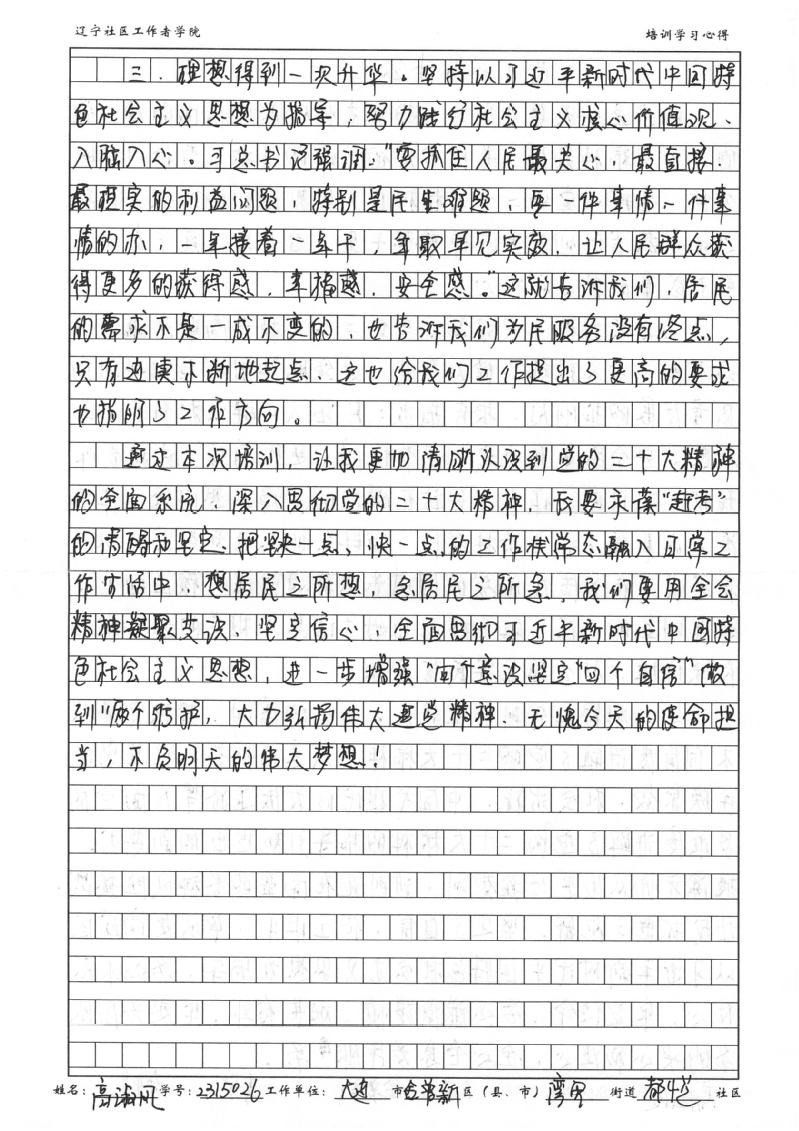 辽宁社区工作者学院 培训学习心得
三.理想得到一次升华。坚持以习近平新时代中国特
色社会主义思想为指导,努力践行社会主义核心价值观、
入脑入心。习总书记强调:"要抓住人民最关心,最直接.
最现实的利益问题,特别是民生难题,要一件事情一件事
情的办,一年接着一年干,争取早见实效.让人民群众获
得更多的获得感、幸福感、安全感。"这就告诉我们,居民
的需求不是一成不变的,也告诉我们为民服务没有终点,
只有连续不断地起点、这也给我们工作提出了更高的要求
也指明了工作方向。
通过本次培训,让我更加清晰认识到党的二十大精神
的全面系统.深入贯彻党的二十大精神,我要永葆"赶考"
的清醒和坚定.把坚决一点、快一点的工作模常态融入日常工
作生活中,想居民之所想,急居民之所急,我们要用全会
精神凝聚共识、坚定信心,全面贯彻习近平新时代中国特
色社会主义思想,进一步增强"四个意识坚定"四个自信"做
到"两个维护,大力弘扬伟大建党精神.无愧今天的使命担
当,不负明天的伟大梦想!
姓名:高淑凤 学号:2315026 工作单位:大连 市 区(县、市)湾里 街道 社区